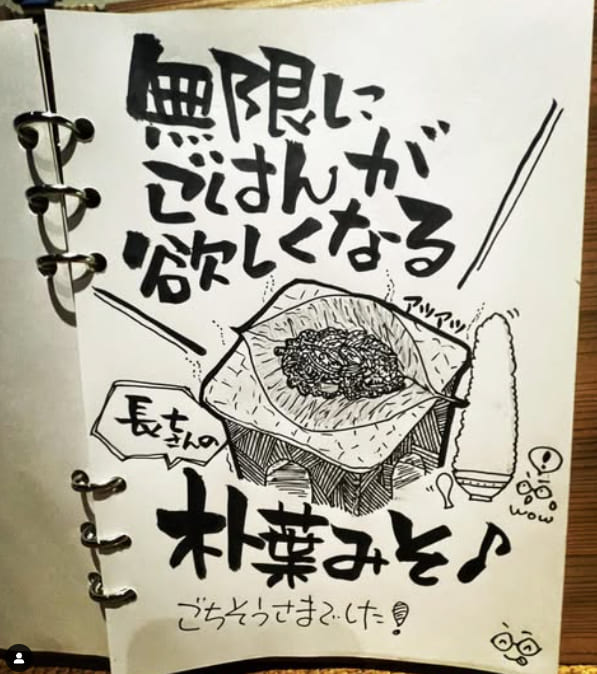 無限に
ごはんが
欲しくなる
アツアツ
長七
さんの
朴葉みそ♪
wow
ごちそうさまでした!